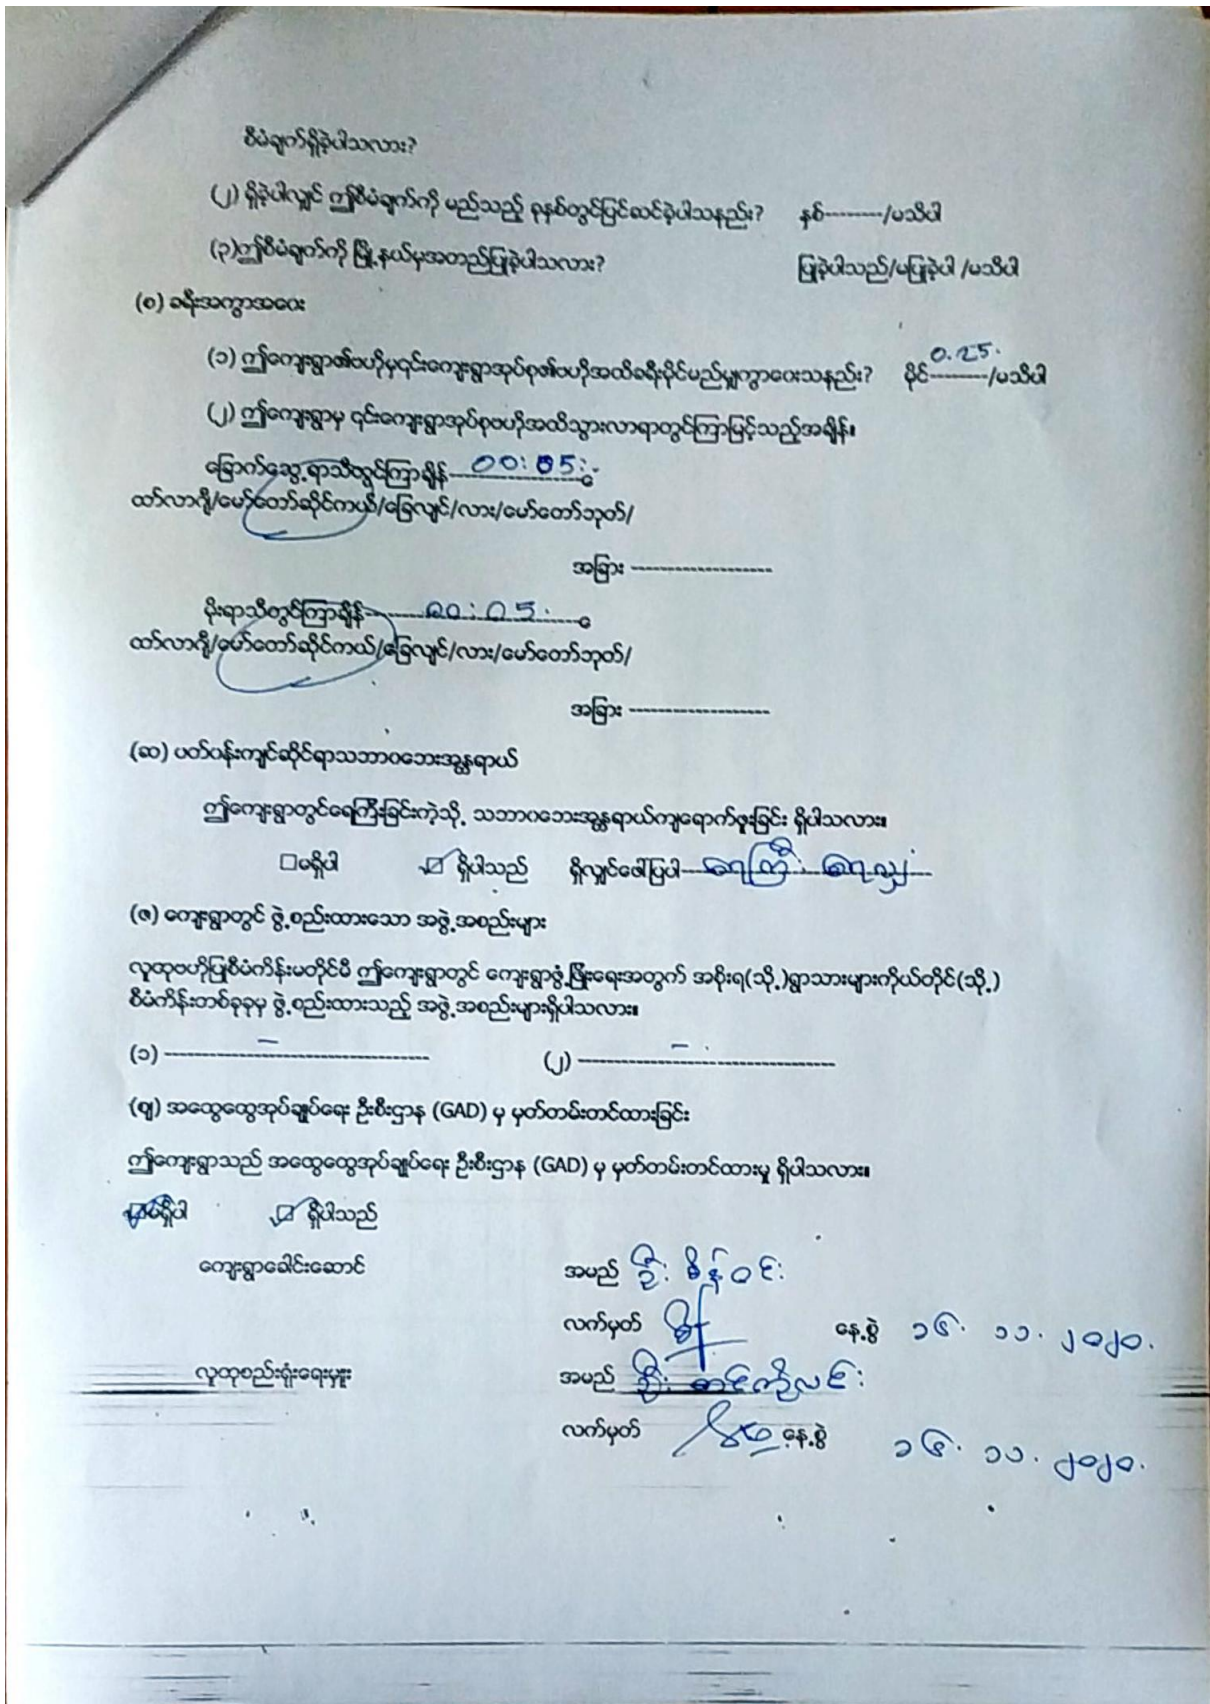 စီမံချက်ရှိခဲ့ပါသလား?
(၂) ရှိခဲ့ပါလျှင် ဤစီမံချက်ကို မည်သည့် ခုနှစ်တွင်ပြင်ဆင်ခဲ့ပါသနည်း? နှစ်---------/မသိပါ
(၃)ဤစီမံချက်ကို မြို့နယ်မှအတည်ပြုခဲ့ပါသလား? ပြုခဲ့ပါသည်/မပြုခဲ့ပါ /မသိပါ
(စ) ခရီးအကွာအဝေး
(၁) ဤကျေးရွာ၏ဗဟိုမှ၎င်းကျေးရွာအုပ်စု၏ဗဟိုအထိခရီးမိုင်မည်မျှကွာဝေးသနည်း? မိုင် 0.25 /မသိပါ
(၂) ဤကျေးရွာမှ ၎င်းကျေးရွာအုပ်စုဗဟိုအထိသွားလာရာတွင်ကြာမြင့်သည့်အချိန်။
ခြောက်သွေ့ရာသီတွင်ကြာချိန် 00:05
ထော်လာဂျီ/မော်တော်ဆိုင်ကယ်/ခြေလျင်/လား/မော်တော်ဘုတ်/
အခြား -------------------
မိုးရာသီတွင်ကြာချိန် 00:05
ထော်လာဂျီ/မော်တော်ဆိုင်ကယ်/ခြေလျင်/လား/မော်တော်ဘုတ်/
အခြား -------------------
(ဆ) ပတ်ဝန်းကျင်ဆိုင်ရာသဘာဝဘေးအန္တရာယ်
ဤကျေးရွာတွင်ရေကြီးခြင်းကဲ့သို့ သဘာဝဘေးအန္တရာယ်ကျရောက်ဖူးခြင်း ရှိပါသလား။
□မရှိပါ ☑ ရှိပါသည် ရှိလျှင်ဖော်ပြပါ ရေကြီး ရေလျှံ
(ဇ) ကျေးရွာတွင် ဖွဲ့စည်းထားသော အဖွဲ့အစည်းများ
လူထုဗဟိုပြုစီမံကိန်းမတိုင်မီ ဤကျေးရွာတွင် ကျေးရွာဖွံ့ဖြိုးရေးအတွက် အစိုးရ(သို့)ရွာသားများကိုယ်တိုင်(သို့)
စီမံကိန်းတစ်ခုခုမှ ဖွဲ့စည်းထားသည့် အဖွဲ့အစည်းများရှိပါသလား။
(၁) - (၂) -
(ဈ) အထွေထွေအုပ်ချုပ်ရေး ဦးစီးဌာန (GAD) မှ မှတ်တမ်းတင်ထားခြင်း
ဤကျေးရွာသည် အထွေထွေအုပ်ချုပ်ရေး ဦးစီးဌာန (GAD) မှ မှတ်တမ်းတင်ထားမှု ရှိပါသလား။
မရှိပါ ☑ ရှိပါသည်
ကျေးရွာခေါင်းဆောင် အမည် ဦးစိန်ဝင်း
လက်မှတ် နေ့စွဲ ၁၆.၁၁.၂၀၂၀.
လူထုစည်းရုံးရေးမှူး အမည် ဦး
လက်မှတ် နေ့စွဲ ၁၆.၁၁.၂၀၂၀.